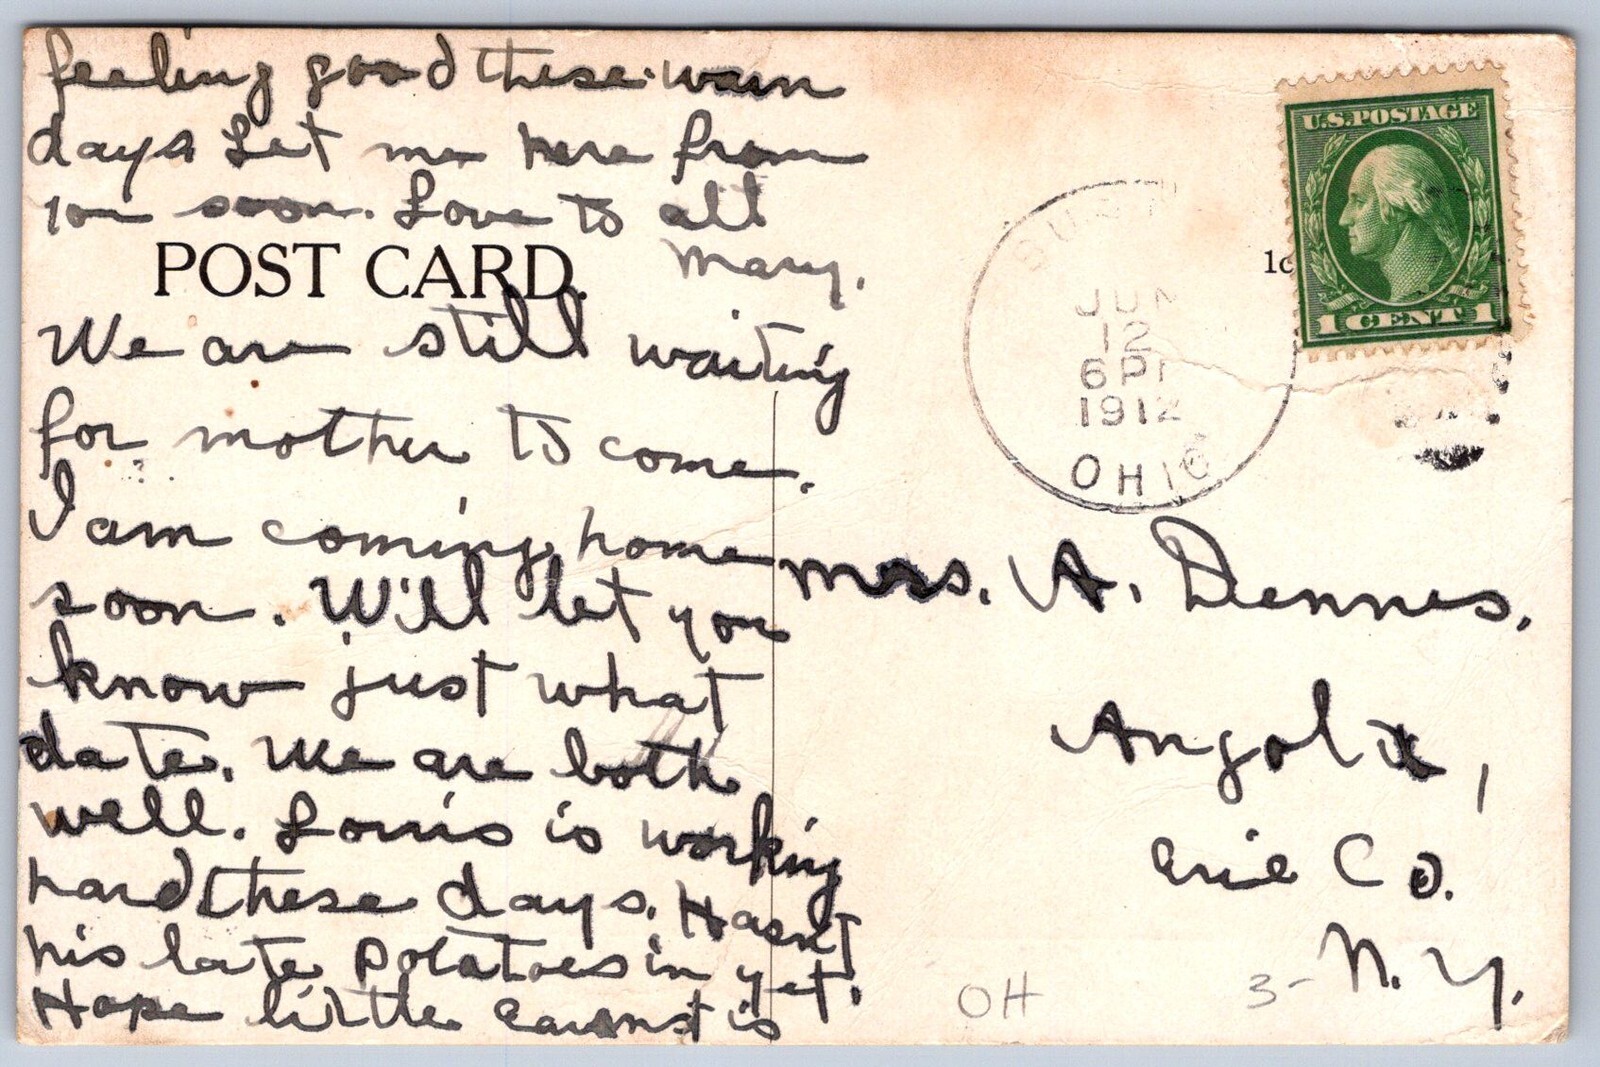 We are still waiting
for mother to come.
I am coming home
soon. Will let you
know just what
date. We are both
well. Louis is working
hard these days. Hasnt
his late potatoes in yet.
Hope little Earnst is
feeling good these warm
days Let me here from
you soon. Love to all
Mary.
POST CARD.
U.S. POSTAGE
1 CENT 1
1c
JUN
12
6 P
1912
OHIO
Mrs. A. Dennis.
Angola,
Erie Co.
N. Y.
OH
3-